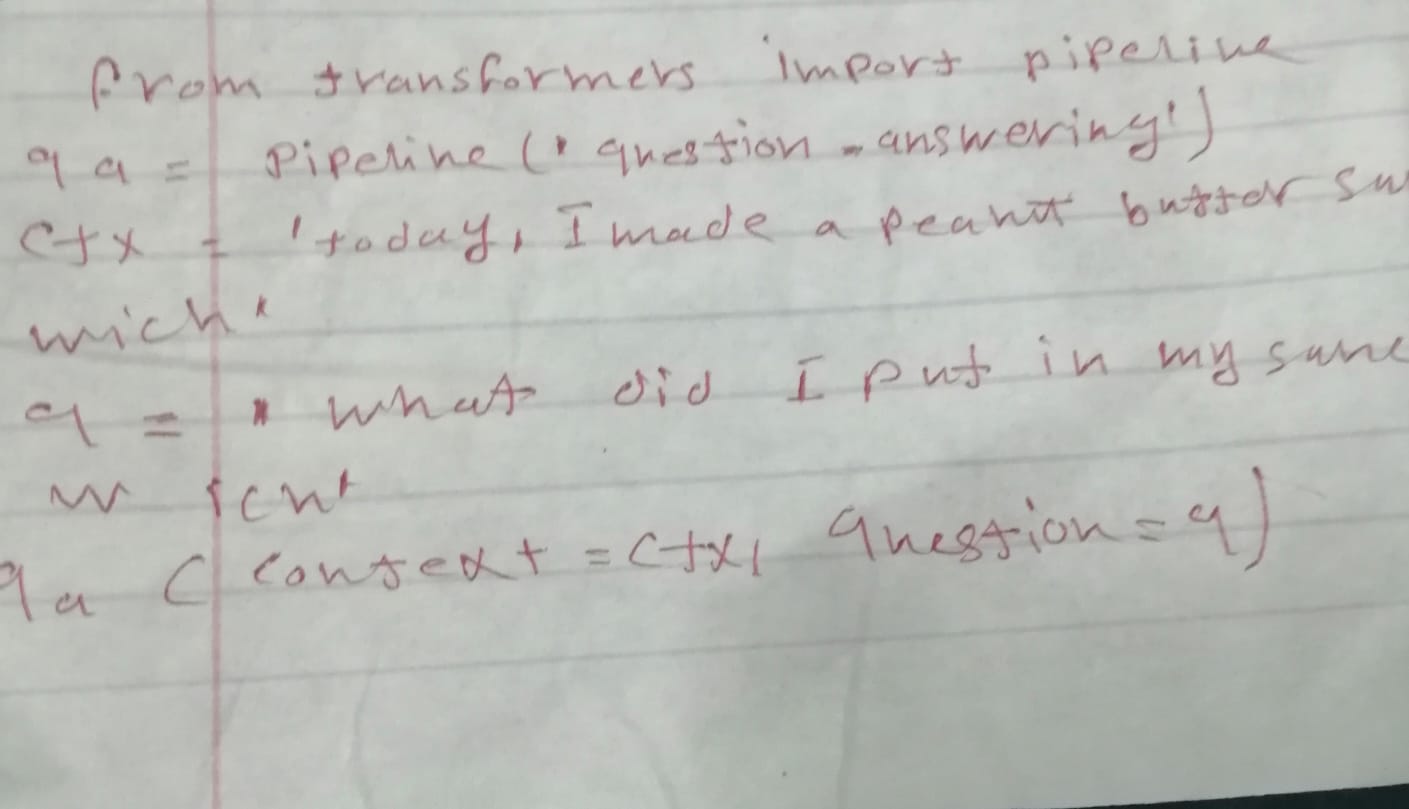 from transformers import pipeline
qa = pipeline ('question-answering')
ctx = 'today, I made a peanut butter sw
wich'
q = "what did I put in my sand
wich'
qa (context = ctx, question = q)